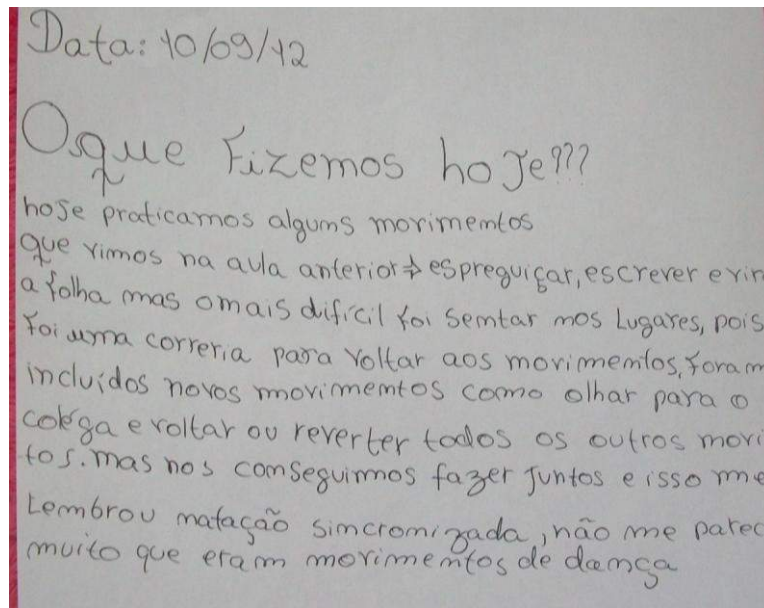 Data: 10/09/12
Osque Fizemos hoJe???
hoJe praticamos algums movimentos
que vimos na aula anterior→espreguiçar, escrever e vir
a folha mas omais difícil foi Semtar mos Lugares, pois
foi uma correria para voltar aos movimemtos, foram
incluídos novos movimemtos como olhar para o
colega e voltar ou reverter todos os outros movi
tos. mas nos comseguimos fazer Juntos e isso me
Lembrou matação simcromizada, não me parec
muito que eram movimemtos de damça